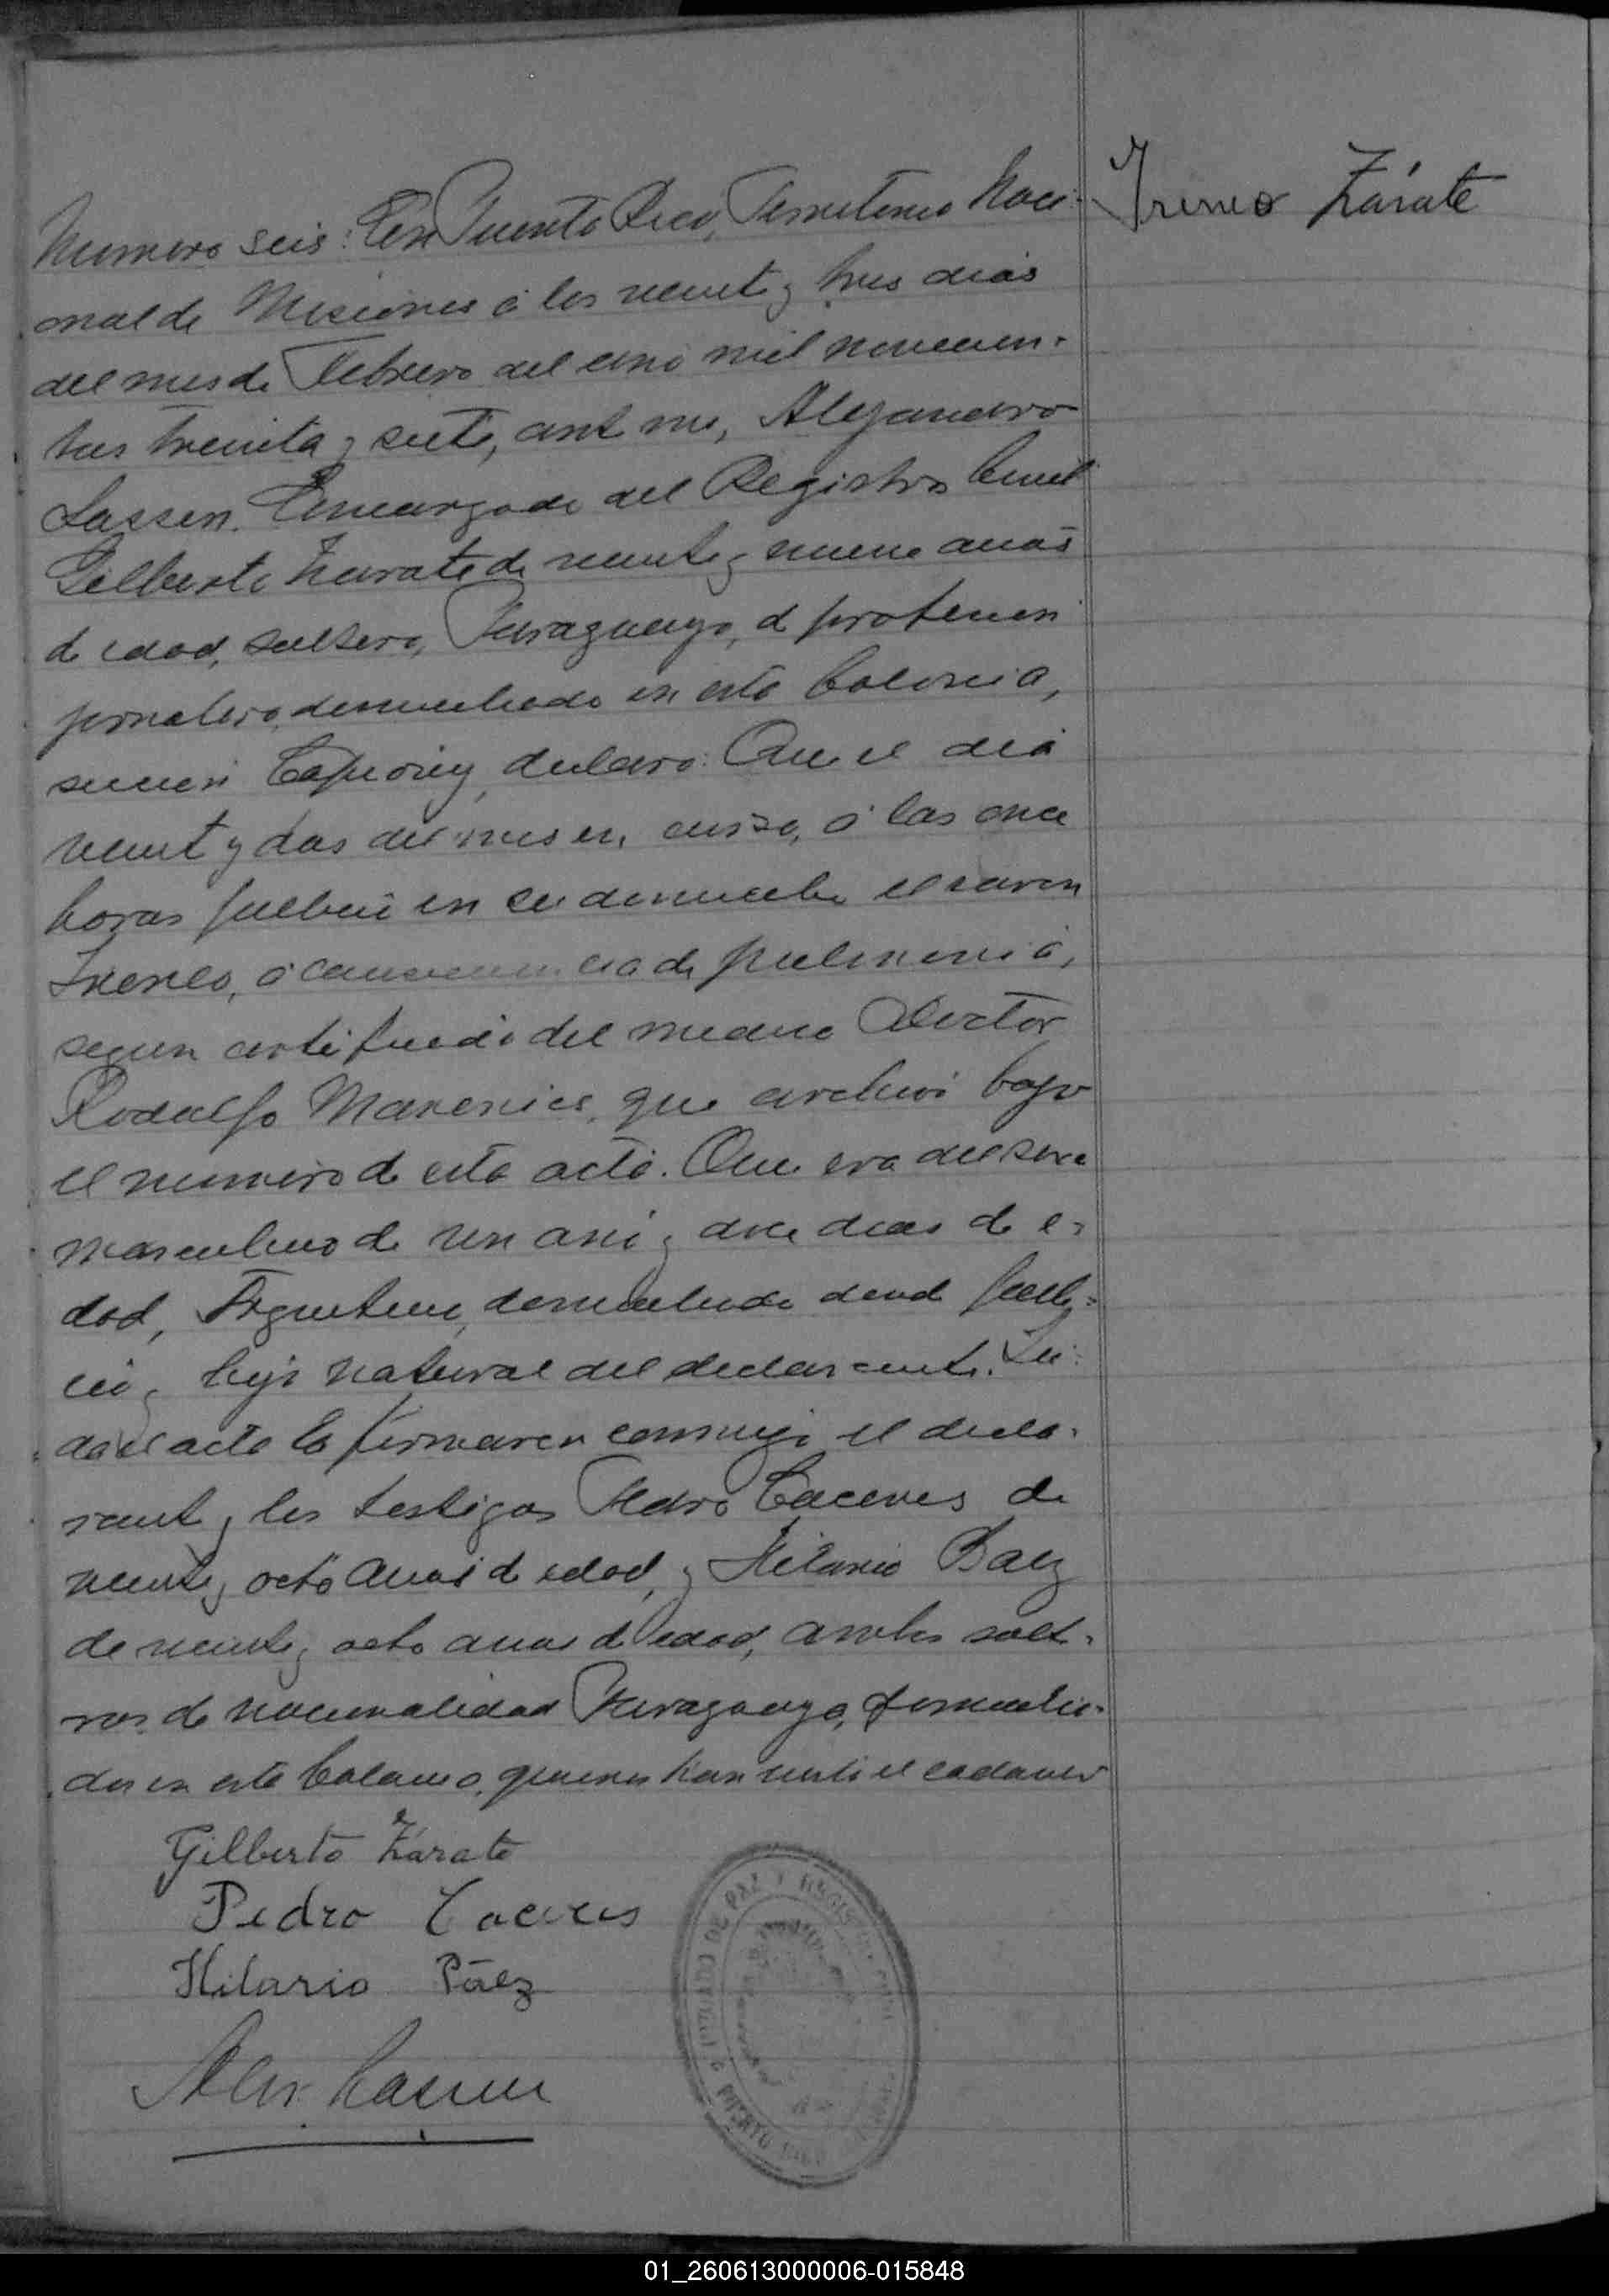 Numero seis: En Puerto Rico, Territorio Naci-
onal de Misiones á los veinte y tres dias
del mes de Febrero del año mil novecien-
tos treinta y siete, ante mi, Alejandro
Lassen. Encargado del Registro Civil
Gilberto Zarate de veinte y nueve años
de edad, soltero, Paraguayo, de profesion
jornalero, domiciliado en esta Colonia,
seccion declaro: Que el dia
veinte y dos del mes en curso, á las once
horas fallecio en su domicilio el varon
Ireneo, á consecuencia de pulmonia,
segun certificado del medico Doctor
Rodolfo que archivo bajo
el numero de esta acta. Que era del sexo
masculino de un año y doce dias de e-
dad, Argentino, domiciliado donde falle-
cio y hijo natural del declarante. Lei-
da el acta la firmaron conmigo el decla-
rante y los testigos Pedro Caceres de
veinte y ocho años de edad, y Hilario Baez
de veinte y ocho años de edad, ambos solte-
ros, de nacionalidad Paraguaya, domicilia-
dos en esta Colonia, quienes han visto el cadaver
Gilberto Zárate
Pedro Caceres
Hilario Páez
Alej. Lassen
Ireneo Zárate
JUZGADO DE PAZ Y PUERTO RICO
01_260613000006-015848